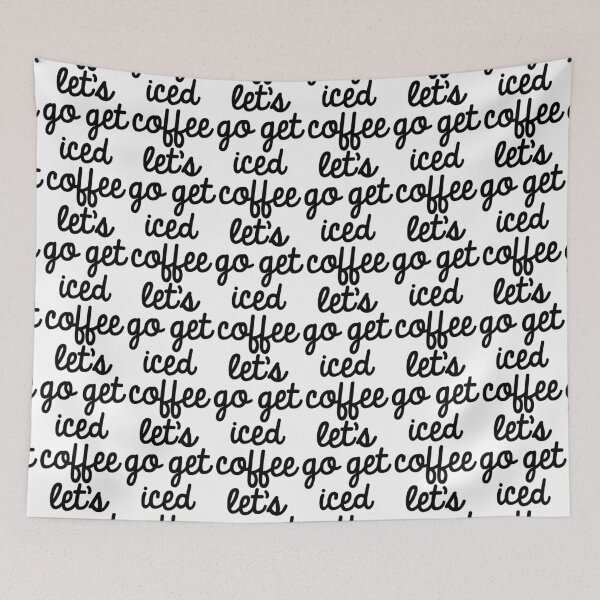 let's iced let's iced let's iced
go get coffee go get coffee go get coffee
iced let's iced let's iced let's
coffee go get coffee go get coffee go get
let's iced let's iced let's iced
go get coffee go get coffee go get coffee
iced let's iced let's iced let's
coffee go get coffee go get coffee go get
let's iced let's iced let's iced
go get coffee go get coffee go get coffee
iced let's iced let's iced let's
coffee go get coffee go get coffee go get
let's iced let's iced let's iced